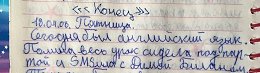 <<Конец>>
10.01.06. Пятница.
Сегодня был английский язык.
Полина весь урок сидела под пар-
той и SMSила с Димой Биланом